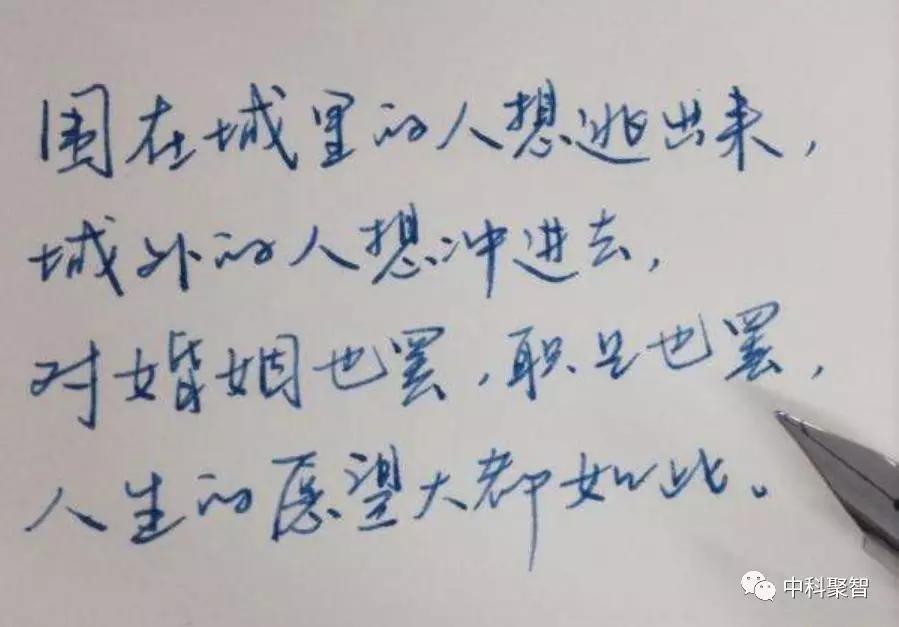 围在城里的人想逃出来，
城外的人想冲进去，
对婚姻也罢，职业也罢，
人生的愿望大都如此。
中科聚智